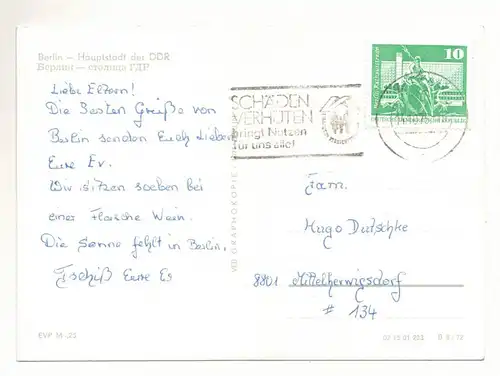 Berlin — Hauptstadt der DDR
Берлин — столица ГДР
Liebe Eltern!
Die Besten Grüße von
Berlin senden Euch Lieben
Eure Ev.
Wir sitzen soeben bei
einer Flasche Wein.
Die Sonne fehlt in Berlin.
Tschüß Eure Ev
EVP M -,20
VEB GRAPHOKOPIE
SCHÄDEN
VERHÜTEN
bringt Nutzen
für uns alle!
10
Fam.
Hugo Dutschke
8801 Mittelherwigsdorf
# 134